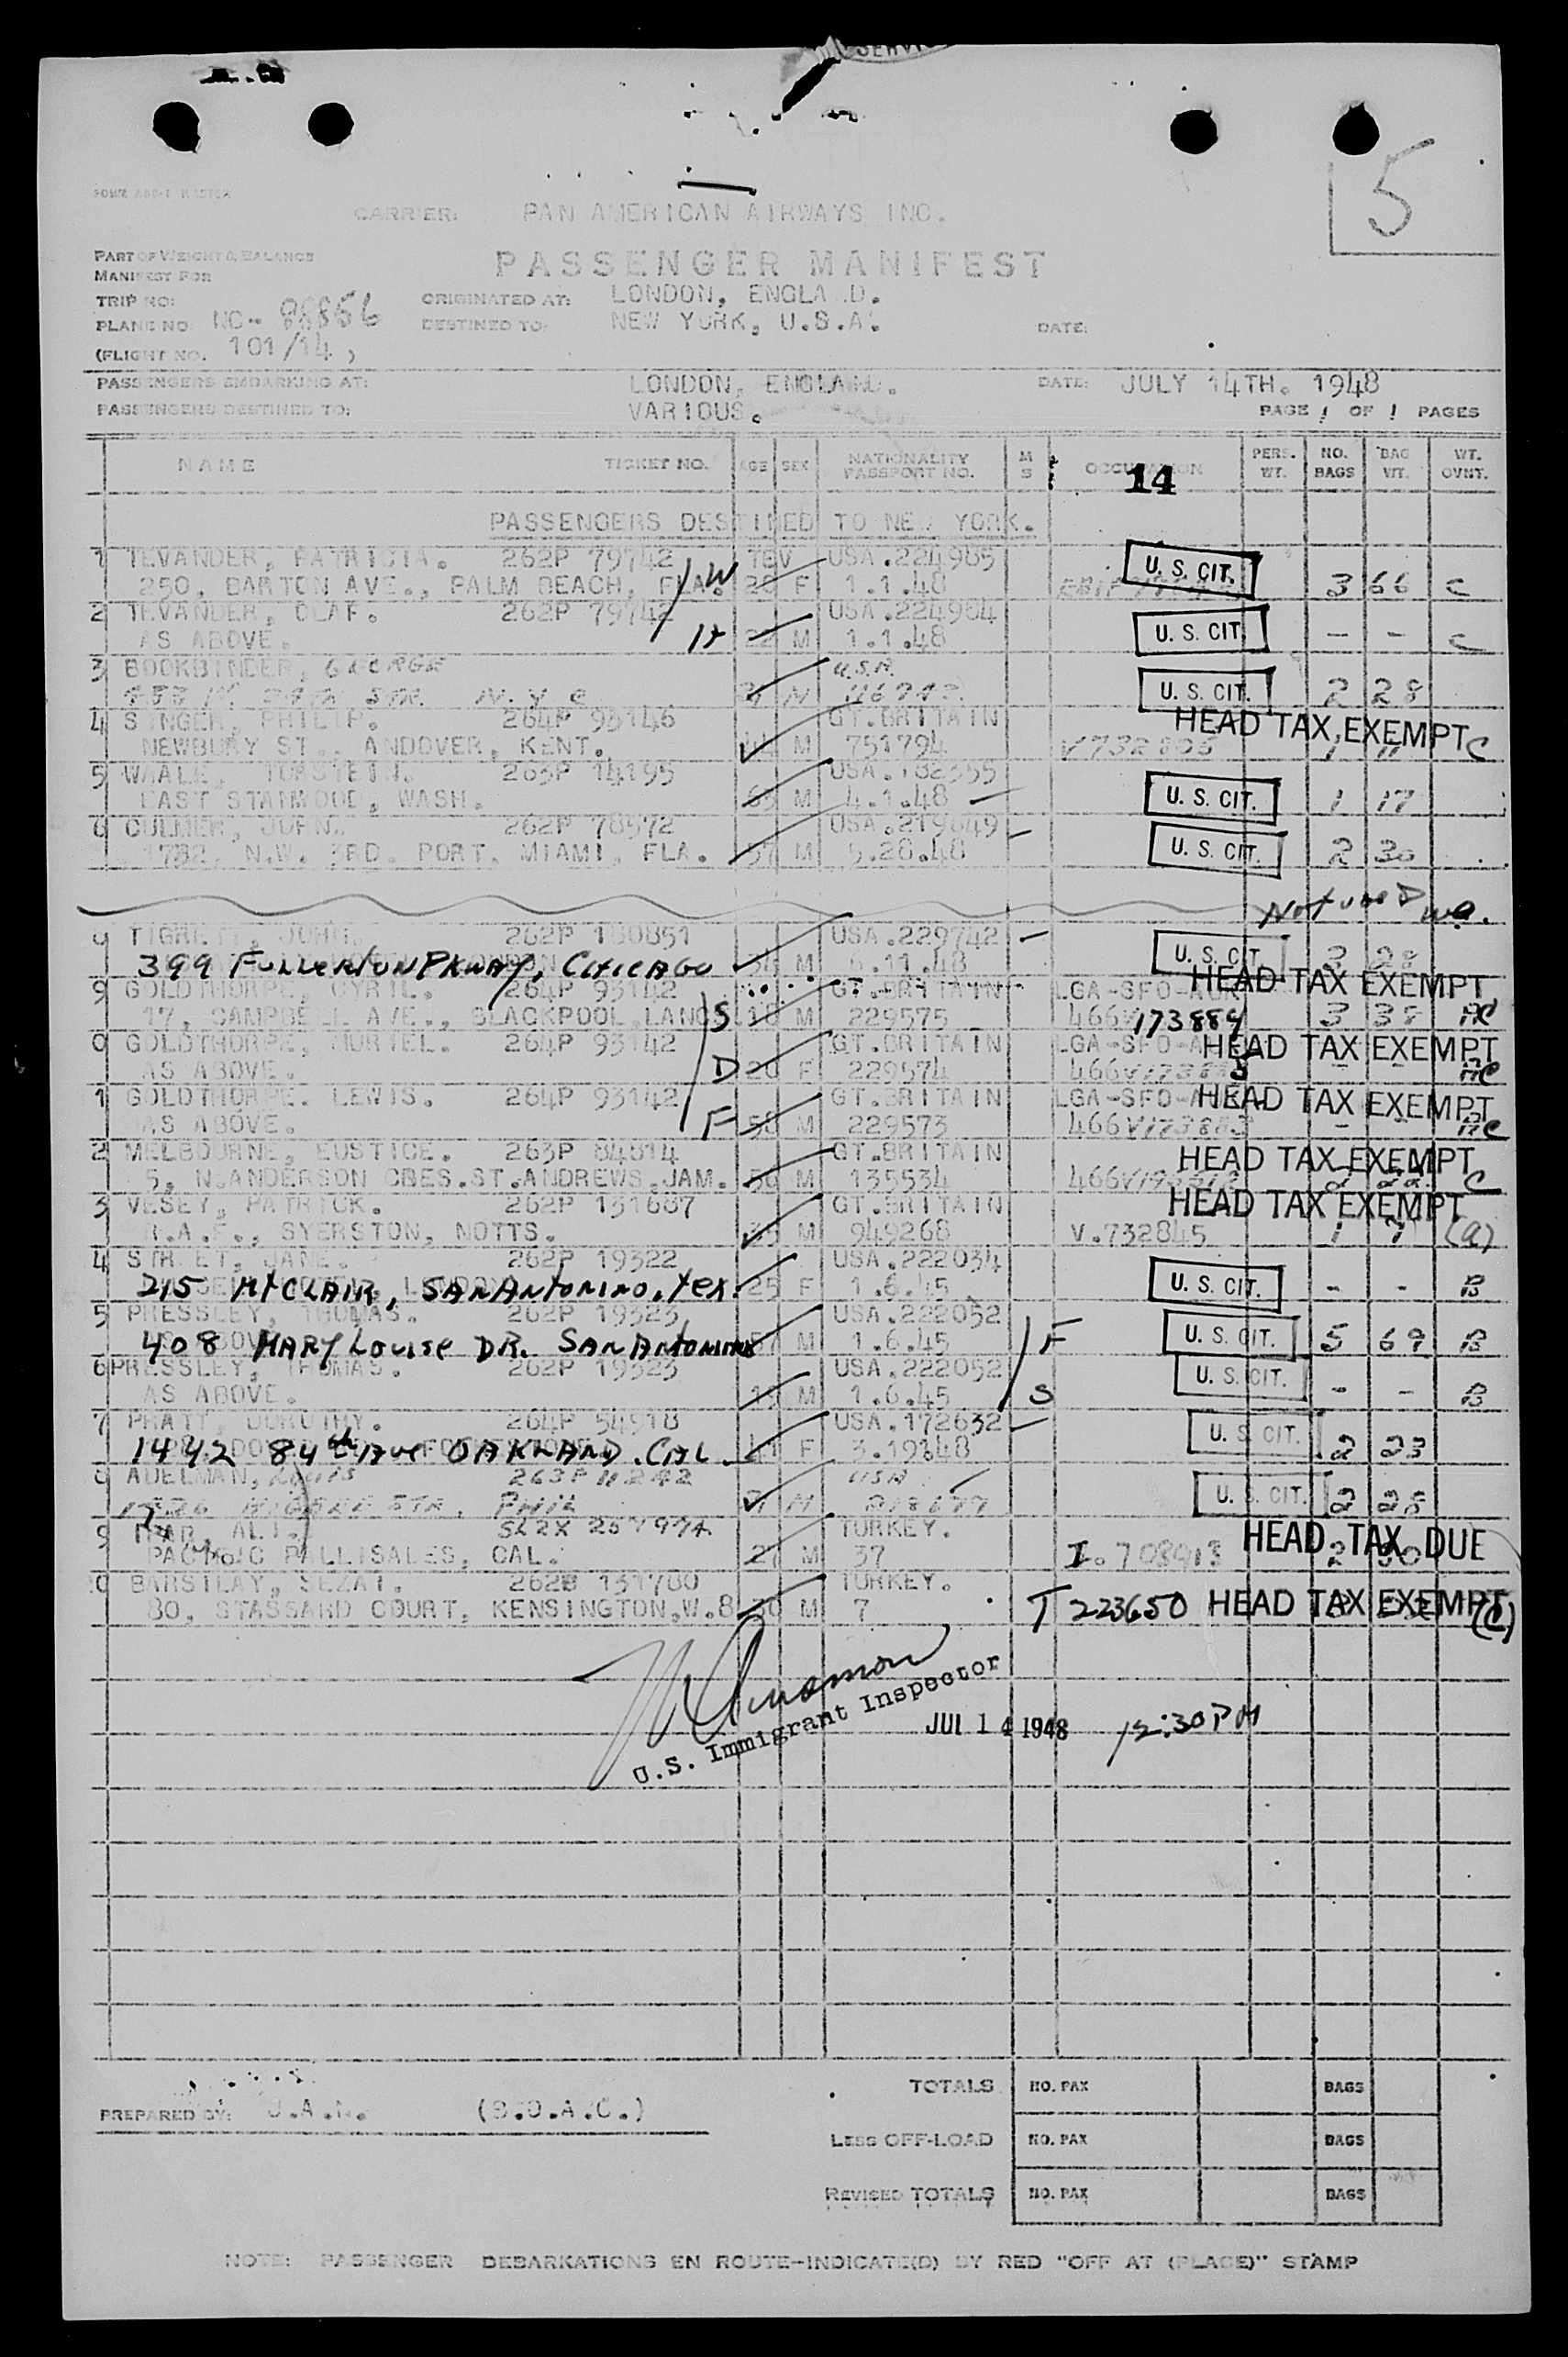 SERVICE
5
CARRIER: PAN AMERICAN AIRWAYS INC.
PART OF WEIGHT & BALANCE
MANIFEST FOR
PASSENGER MANIFEST
TRIP NO:
ORIGINATED AT: LONDON, ENGLA D.
PLANE NO NC- 88856
DESTINED TO: NEW YORK, U.S.A.
DATE:
(FLIGHT NO. 101/14 )
PASSENGERS EMBARKING AT: LONDON, ENGLAND. DATE: JULY 14TH. 1948
PASSENGERS DESTINED TO: VARIOUS. PAGE 1 OF 1 PAGES
NAME TICKET NO. AGE SEX NATIONALITY PASSPORT NO. M S OCCUPATION PERS. WT. NO. BAGS BAG WT. WT. OVNT.
14
PASSENGERS DESTINED TO NEW YORK.
1 TEVANDER, PATRICIA. 262P 79742 TEV USA.224985 U. S. CIT.
250, BARTON AVE., PALM BEACH, FLA. W F 1.1.48 3 66 C
2 TEVANDER, OLAF. 262P 79742 USA.224984 U. S. CIT.
AS ABOVE. H 22 M 1.1.48 - - C
3 BOOKBINDER, GEORGE U.S.A. U. S. CIT.
STR. N.Y.C M 2 28
4 SINGER, PHILIP. 264P 93146 GT.BRITAIN HEAD TAX EXEMPT
NEWBURY ST., ANDOVER, KENT. 44 M 751794 V732805 1 11 C
5 WAALE, TORSTEIN. 263P 14195 USA.182355 U. S. CIT.
EAST STANWOOD, WASH. 65 M 4.1.48 1 17
6 CULMER, JOHN. 262P 78572 USA.219649 U. S. CIT.
1782, N.W. 3RD. PORT, MIAMI, FLA. 57 M 5.28.48 2 30
Not used
TIGRETT, JOHN. 262P 180851 USA.229742 U. S. CIT.
399 FULLERTON PKWAY, CHICAGO 34 M 6.11.48 3 28
9 GOLDTHORPE, CYRIL. 264P 93142 GT.BRITAIN LGA-SFO-AUK HEAD TAX EXEMPT
17, CAMPBELL AVE., BLACKPOOL, LANCS S 18 M 229575 466V173884 3 38
0 GOLDTHORPE, MURIEL. 264P 93142 GT.BRITAIN LGA-SFO-A HEAD TAX EXEMPT
AS ABOVE. D 20 F 229574 - -
1 GOLDTHORPE. LEWIS. 264P 93142 GT.BRITAIN LGA-SFO-A HEAD TAX EXEMPT
AS ABOVE. F 50 M 229573 466V173883 - -
2 MELBOURNE, EUSTICE. 263P 84814 GT.BRITAIN HEAD TAX EXEMPT
5, N.ANDERSON CRES.ST.ANDREWS.JAM. 50 M 135534 2 22 C
3 VESEY, PATRICK. 262P 131687 GT.BRITAIN HEAD TAX EXEMPT
R.A.F., SYERSTON, NOTTS. 35 M 949268 V.732845 1 7 (a)
4 STREET, JANE. 262P 19322 USA.222034 U. S. CIT.
215 Mt CLAIR, SAN ANTONINO. TEX. 25 F 1.6.45 - - B
5 PRESSLEY, THOMAS. 262P 19323 USA.222052 U. S. CIT.
408 MARY LOUISE DR. SAN ANTONINO 57 M 1.6.45 F 5 69 B
6 PRESSLEY, THOMAS. 262P 19323 USA.222052 U. S. CIT.
AS ABOVE. 13 M 1.6.45 S - - B
7 PRATT, DOROTHY. 264P 54918 USA.172632 U. S. CIT.
1442 84th Ave OAKLAND. CAL 41 F 3.19.48 2 23
8 ADELMAN, LOUIS 263P 11242 USA U. S. CIT.
STR, PHIL M 2 25
9 IPAR, ALI. TURKEY.
PACIFIC PALLISADES, CAL. 27 M 37 I.708913 HEAD TAX DUE
0 BARSTLAY, SEZAI. 262B 131780 TURKEY.
80, STASSARD COURT, KENSINGTON,W.8 30 M 7 T 223650 HEAD TAX EXEMPT (C)
U.S. Immigrant Inspector
JUL 14 1948 12:30 PM
TOTALS NO. PAX BAGS
PREPARED BY: J.A.N. (B.O.A.C.)
LESS OFF-LOAD NO. PAX BAGS
REVISED TOTALS NO. PAX BAGS
NOTE: PASSENGER DEBARKATIONS EN ROUTE-INDICATE(D) BY RED "OFF AT (PLACE)" STAMP